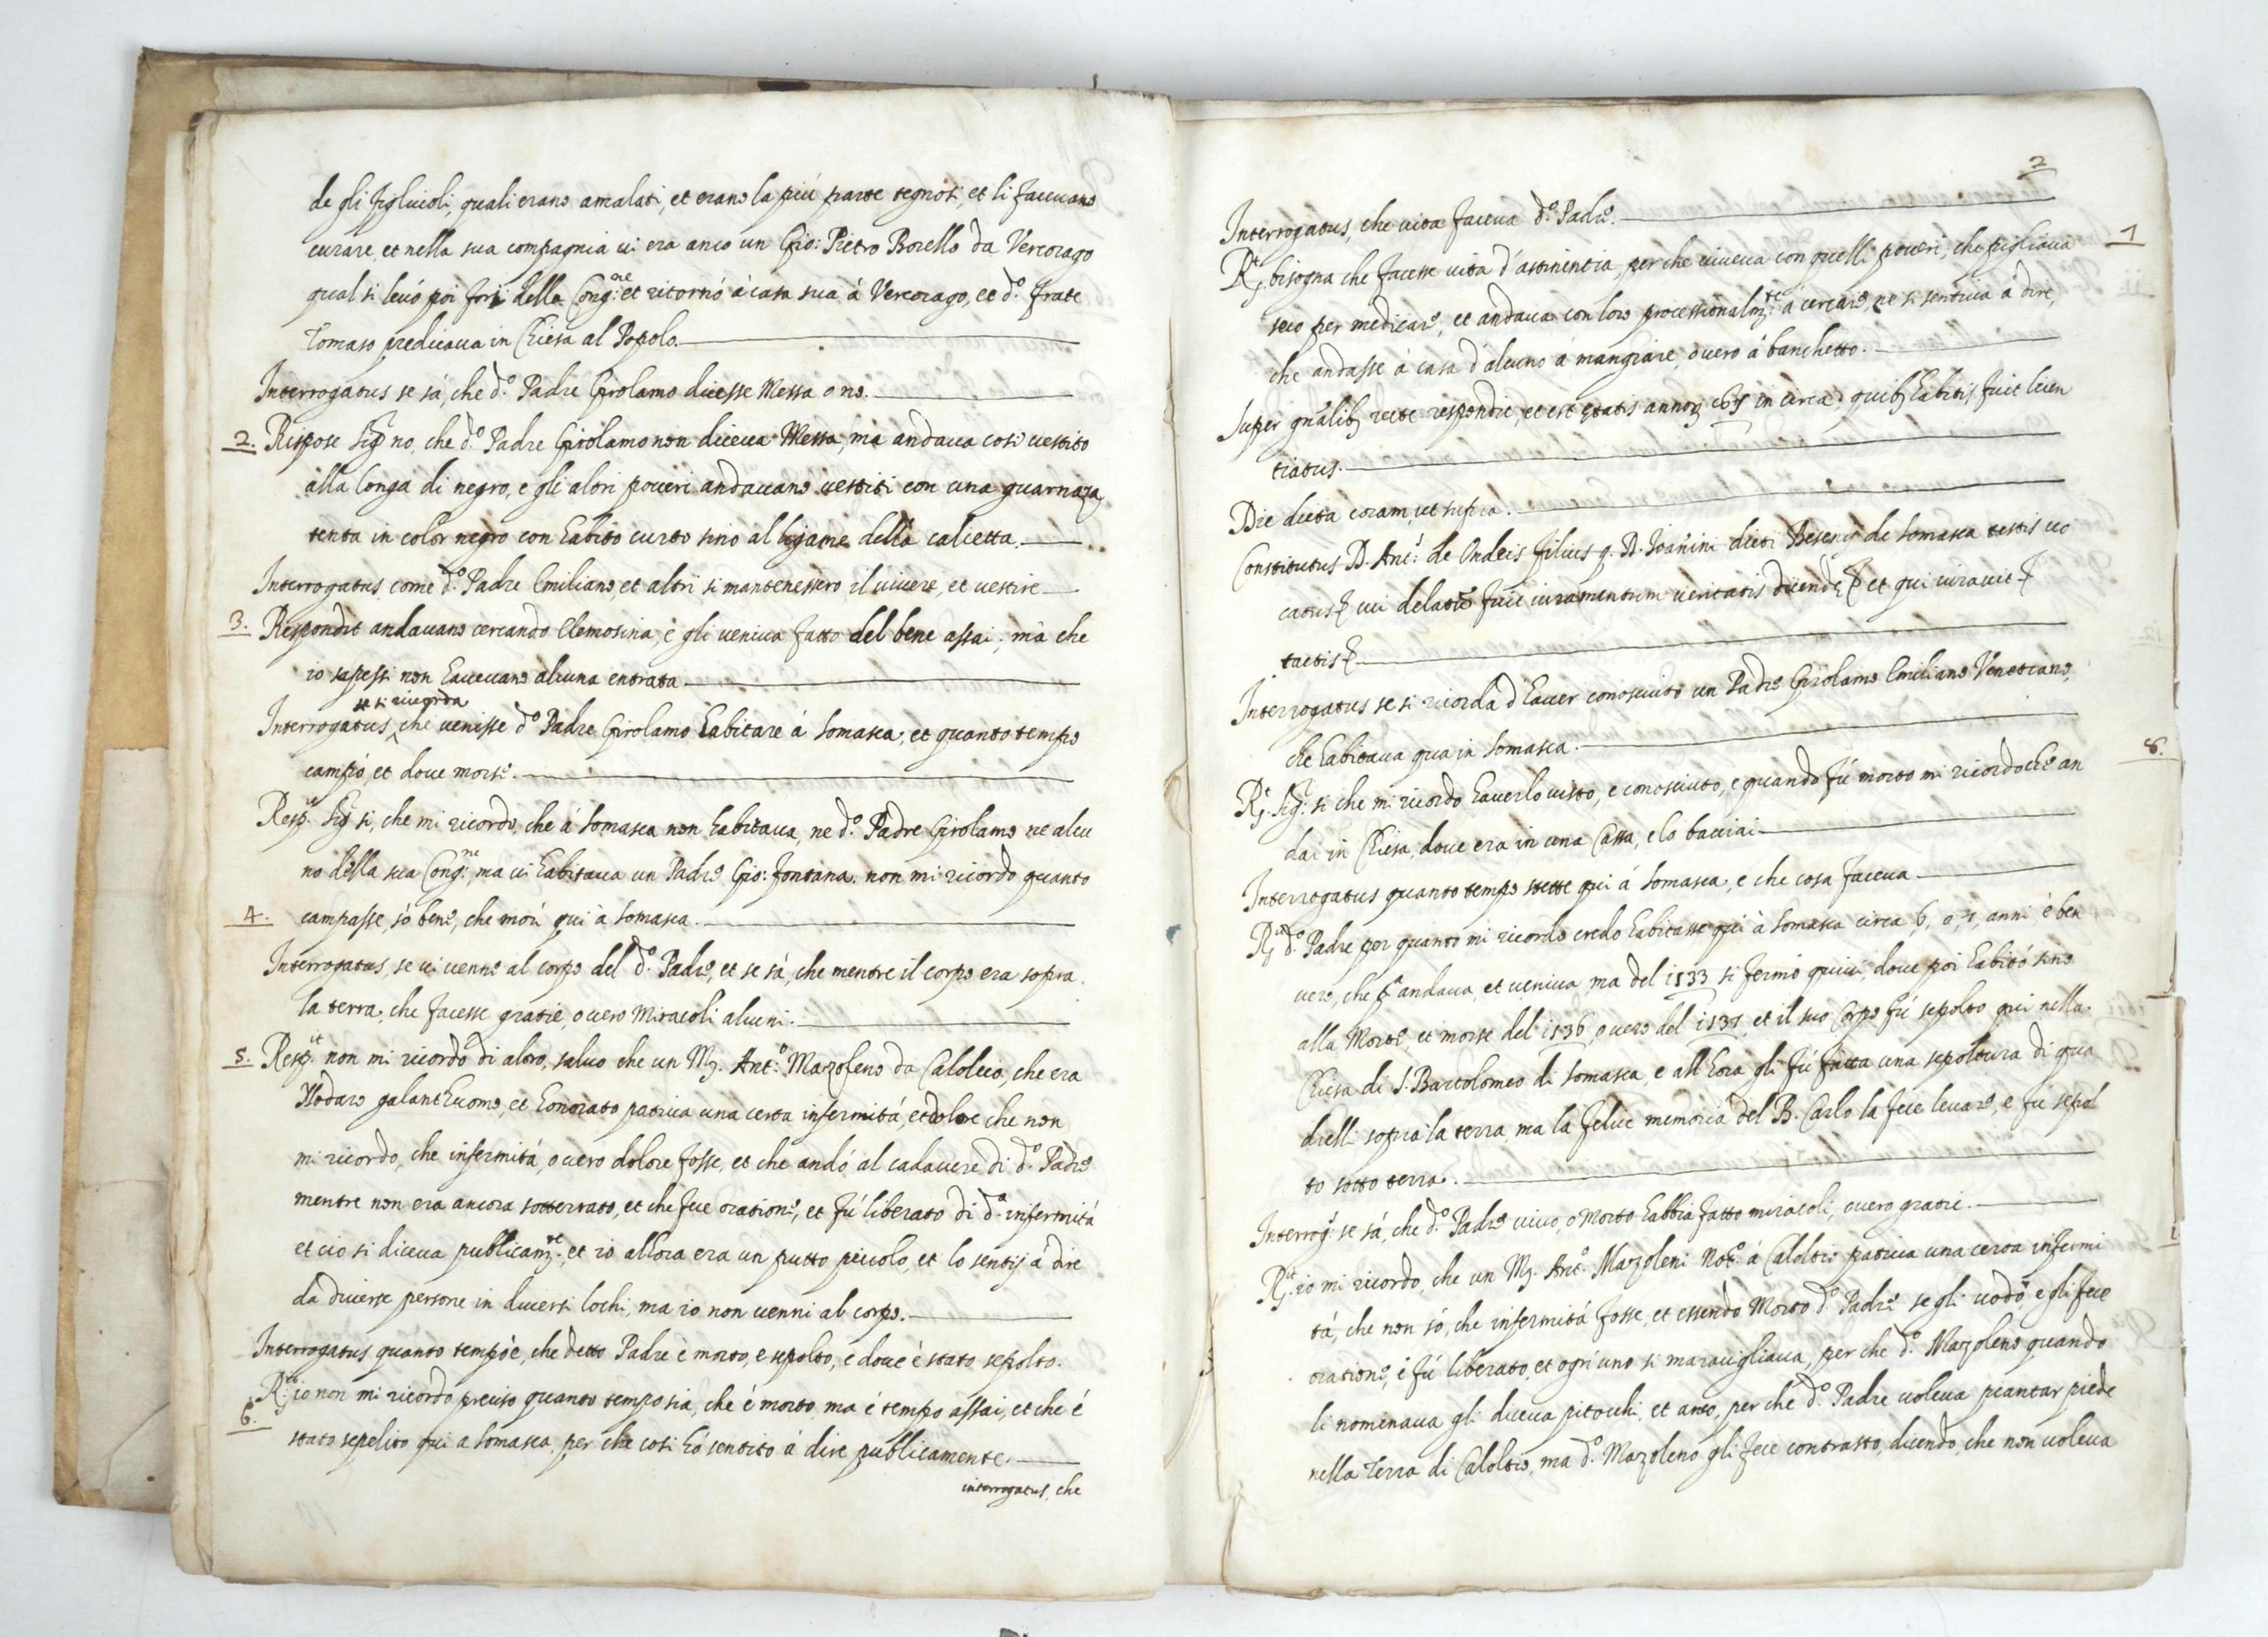 de gli figluioli, quali erano amalati, et erano la più parte tegnosi, et li faceuano
curare, et nella sua compagnia ui era anco un Gio: Pietro Borello da Vercorago
qual si leuó poi fori della Cong:ne et ritornó à casa sua á Vercorago, et d.o frate
Tomaso predicaua in Chiesa al Popolo.
Interrogatus se sà, che d.o Padre Girolamo dicesse Messa o no.
2. Rispose Sig.r no, che d.o Padre Girolamo non diceua Messa, mà andaua cosi uestito
alla longa di negro, e gli altri poueri andauano uestiti con una guarnaza
tenta in color negro con habito curto sino al ligame della calcetta.
Interrogatus come d.o Padre Emiliano, et altri si mantenessero il uiuere, et uestire
3. Respondit andauano cercando elemosina, e gli ueniua fatto del bene assai; mà che
io sapessi non haueuano alcuna entrata
se si ricorda
Interrogatus, che uenisse d.o Padre Girolamo habitare á Somasca, et quanto tempo
campó, et doue morse.
Resp.it Sig.r si, che mi ricordo, che á Somasca non habitaua, ne d.o Padre Girolamo ne alcu
no della sua Cong:ne, ma ui habitaua un Padre Gio: fontana. non mi ricordo quanto
4. campasse, só bene, che morì qui à Somasca.
Interrogatus, se ui uenne al corpo del d.o Padre, et se sà, che mentre il corpo era sopra
la terra, che facesse gratie, ouero Miracoli alcuni.
5. Resp.it non mi ricordo di altro, saluo che un M. Ant:o Mazoleno da Calolcio, che era
Nodaro galanthuomo, et honorato patiua una certa infermitá, et dolore che non
mi ricordo, che infermitá, ouero dolore fosse, et che andó al cadauere di d.o Padre
mentre non era ancora sotterrato, et che fece oratione, et fú liberato di d.a infermitá
et cio si diceua publicam.te et io allora era un putto piccolo, et lo sentij á dire
da diuerse persone in diuersi lochi, ma io non uenni al corpo.
Interrogatus quanto tempo è, che detto Padre è morto, e sepolto, e doue è stato sepolto.
6. R.it io non mi ricordo preciso quanto tempo sia, che é morto, ma é tempo assai, et che é
stato sepelito qui a Somasca, per che cosi hó sentito á dire publicamente.
interrogatus, che
2
Interrogatus, che uita faceua d.o Padre.
R.t bisogna che facesse uita d'astinentia, per che uiueua con quelli poueri, che pigliaua
7
seco per medicare, et andaua con loro processionalm.te á cercare, ne si sentiua á dire,
che andasse á casa d'alcuno á mangiare, ouero á banchetto.
Super gnalib, recte respondit, et est etatis annor, in circa, quib, habitis, fuit licen
tiatus.
Die dicta coram, ut supra.
Constitutus D. Ant: de Ondeis filius q. D. Joanini dicti de Somasca testis uo
catus, cui delatũ fuit iuramentum ueritatis dicende, et qui iurauit
tactis
Interrogatus se si ricorda d'hauer conosciuto un Padre Girolamo Emiliano Venetiano,
che habitaua qua in Somasca.
R.t Sig.r si che mi ricordo hauerlo uisto, e conosciuto, e quando fú morto mi ricordo che an
8.
dai in Chiesa, doue era in una Cassa, e lo bacciai
Interrogatus quanto tempo stette qui á Somasca, e che cosa faceua
R.it d.o Padre per quanto mi ricordo credo habitasse qui à Somasca circa 6, o, 7, anni è ben
uero, che andaua, et ueniua, ma del 1533 si fermó quiui, doue poi habitó sino
alla Morte, et morse del 1536, ouero del 1537, et il suo Corpo fú sepolto qui nella
Chiesa di S. Bartolomeo di Somasca, e all'hora gli fú fatta una sepoltura di qua
drelli sopra la terra, ma la felice memoria del B. Carlo la fece leuare, e fu sepol
to sotto terra.
Interrog.s se sá, che d.o Padre uiuo, o Morto habbia fatto miracoli, ouero gratie.
R.it io mi ricordo, che un M. Ant.o Mazoleni Not.o á Caloltio patiua una certa infermi
tá, che non só, che infermitá fosse, et essendo Morto d.o Padre se gli uodó, e gli fece
oratione, é fú liberato, et ogn'uno si marauigliaua, per che d.o Mazoleno quando
li nominaua gli diceua pitocchi, et anco, per ché d.o Padre uoleua piantar piede
nella Terra di Caloltio, ma d.o Mazoleno gli fece contrasto, dicendo, che non uoleua